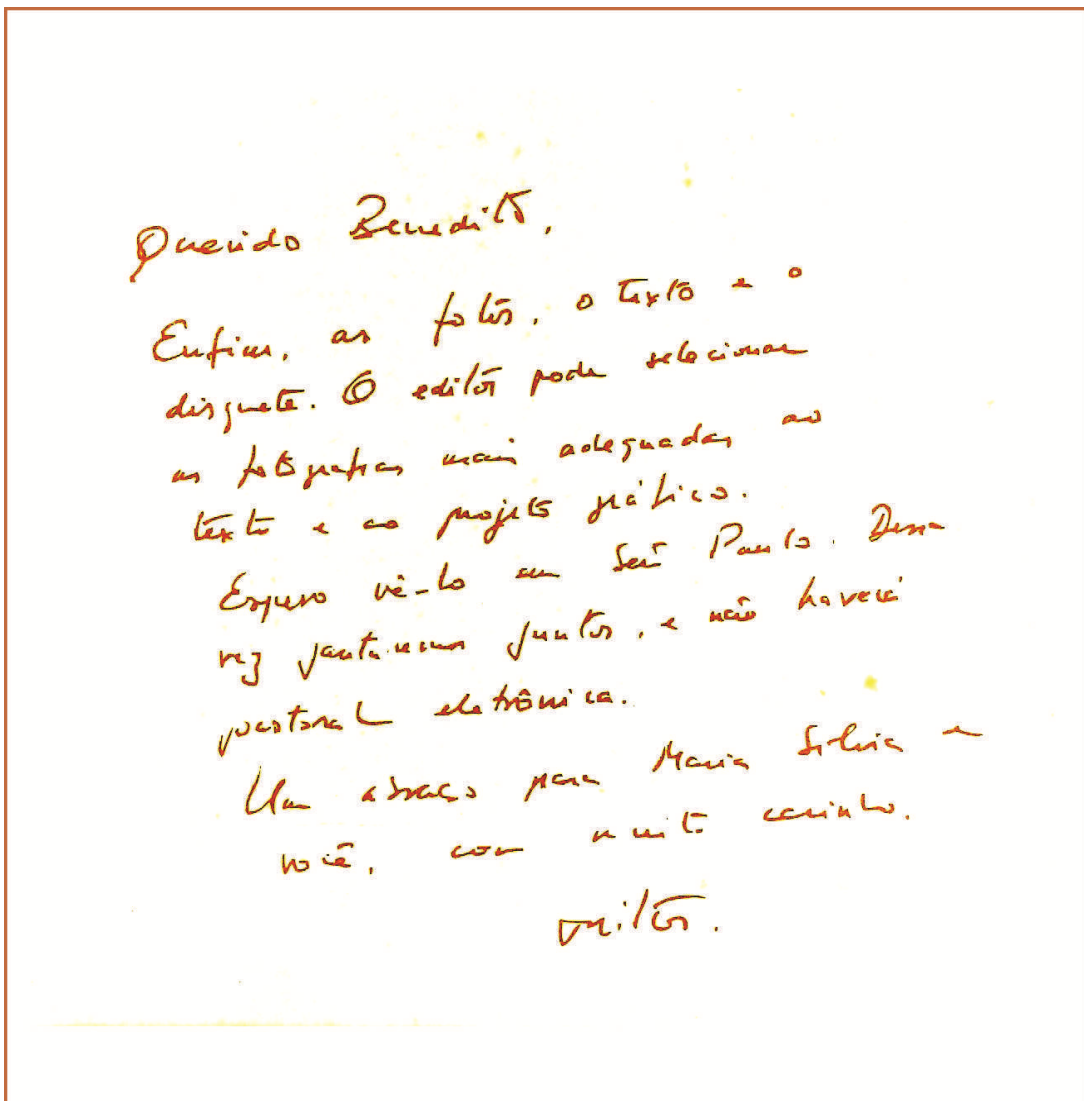 Querido Benedito,
Enfim, as fotos, o texto e o
disquete. O editor pode selecionar
as fotografias mais adequadas ao
texto e ao projeto gráfico.
Espero vê-lo em São Paulo. Dessa
vez jantaremos juntos, e não haverá
pastoral eletrônica.
Um abraço para Maria Silvia e
você, com muito carinho.
Milton.